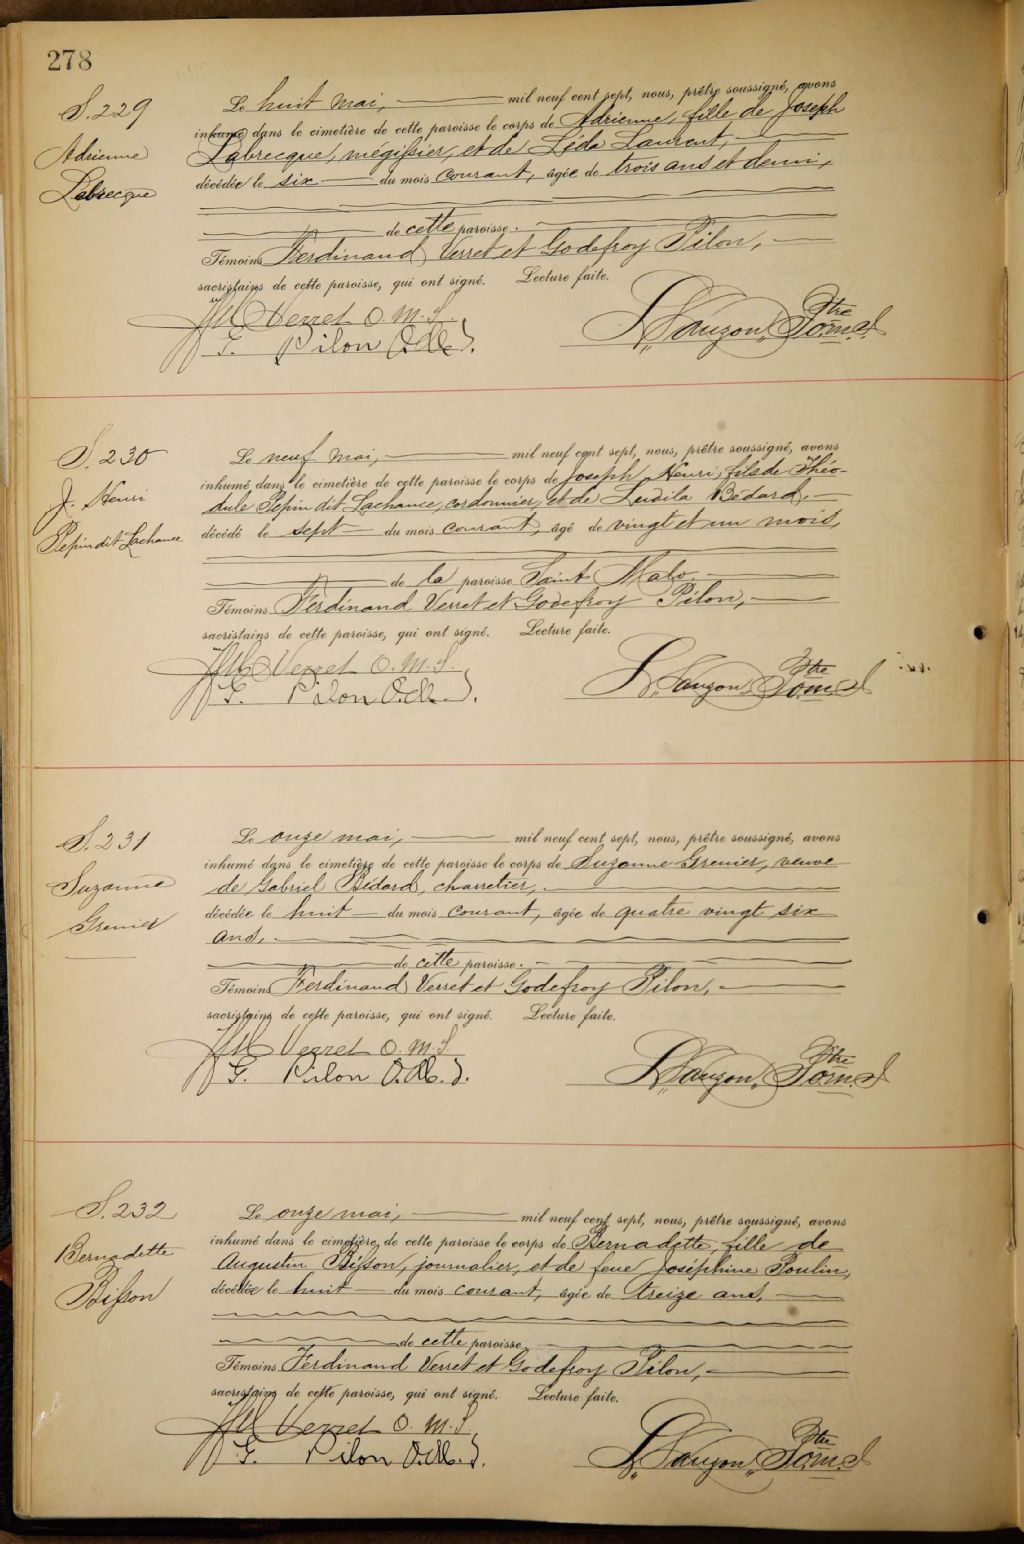 278
S. 229
Adrienne
Labrecque
Le huit mai, mil neuf cent sept, nous, prêtre soussigné, avons
inhumé dans le cimetière de cette paroisse le corps de Adrienne, fille de Joseph
Labrecque, mégissier, et de Léda Laurent,
décédée le six du mois courant, âgée de trois ans et demi,
de cette paroisse.
Témoins Ferdinand Verret et Godefroy Pilon,
sacristains de cette paroisse, qui ont signé. Lecture faite.
Verret O. M. I.
G. Pilon O.M.I.
Lauzon, Ptre
O.m.I
S. 230
J. Henri
Pepin dit Lachance
Le neuf mai, mil neuf cent sept, nous, prêtre soussigné, avons
inhumé dans le cimetière de cette paroisse le corps de Joseph Henri, fils de Théo-
dule Pepin dit Lachance, cordonnier, et de Ludila Bédard,
décédé le sept du mois courant, âgé de vingt et un mois,
de la paroisse Saint Malo.
Témoins Ferdinand Verret et Godefroy Pilon,
sacristains de cette paroisse, qui ont signé. Lecture faite.
Verret O. M. I.
G. Pilon O.M.I.
Lauzon, Ptre
O.m.I
S. 231
Suzanne
Grenier
Le onze mai, mil neuf cent sept, nous, prêtre soussigné, avons
inhumé dans le cimetière de cette paroisse le corps de Suzanne Grenier, veuve
de Gabriel Bédard, charretier,
décédée le huit du mois courant, âgée de quatre vingt six
ans,
de cette paroisse.
Témoins Ferdinand Verret et Godefroy Pilon,
sacristains de cette paroisse, qui ont signé. Lecture faite.
Verret O. M. I.
G. Pilon O.M.I.
Lauzon, Ptre
O.m.I
S. 232
Bernadette
Bisson
Le onze mai, mil neuf cent sept, nous, prêtre soussigné, avons
inhumé dans le cimetière de cette paroisse le corps de Bernadette, fille de
Augustin Bisson, journalier, et de feue Joséphine Poulin,
décédée le huit du mois courant, âgée de treize ans,
de cette paroisse
Témoins Ferdinand Verret et Godefroy Pilon,
sacristains de cette paroisse, qui ont signé. Lecture faite.
Verret O. M. I.
G. Pilon O.M.I.
Lauzon, Ptre
O.m.I